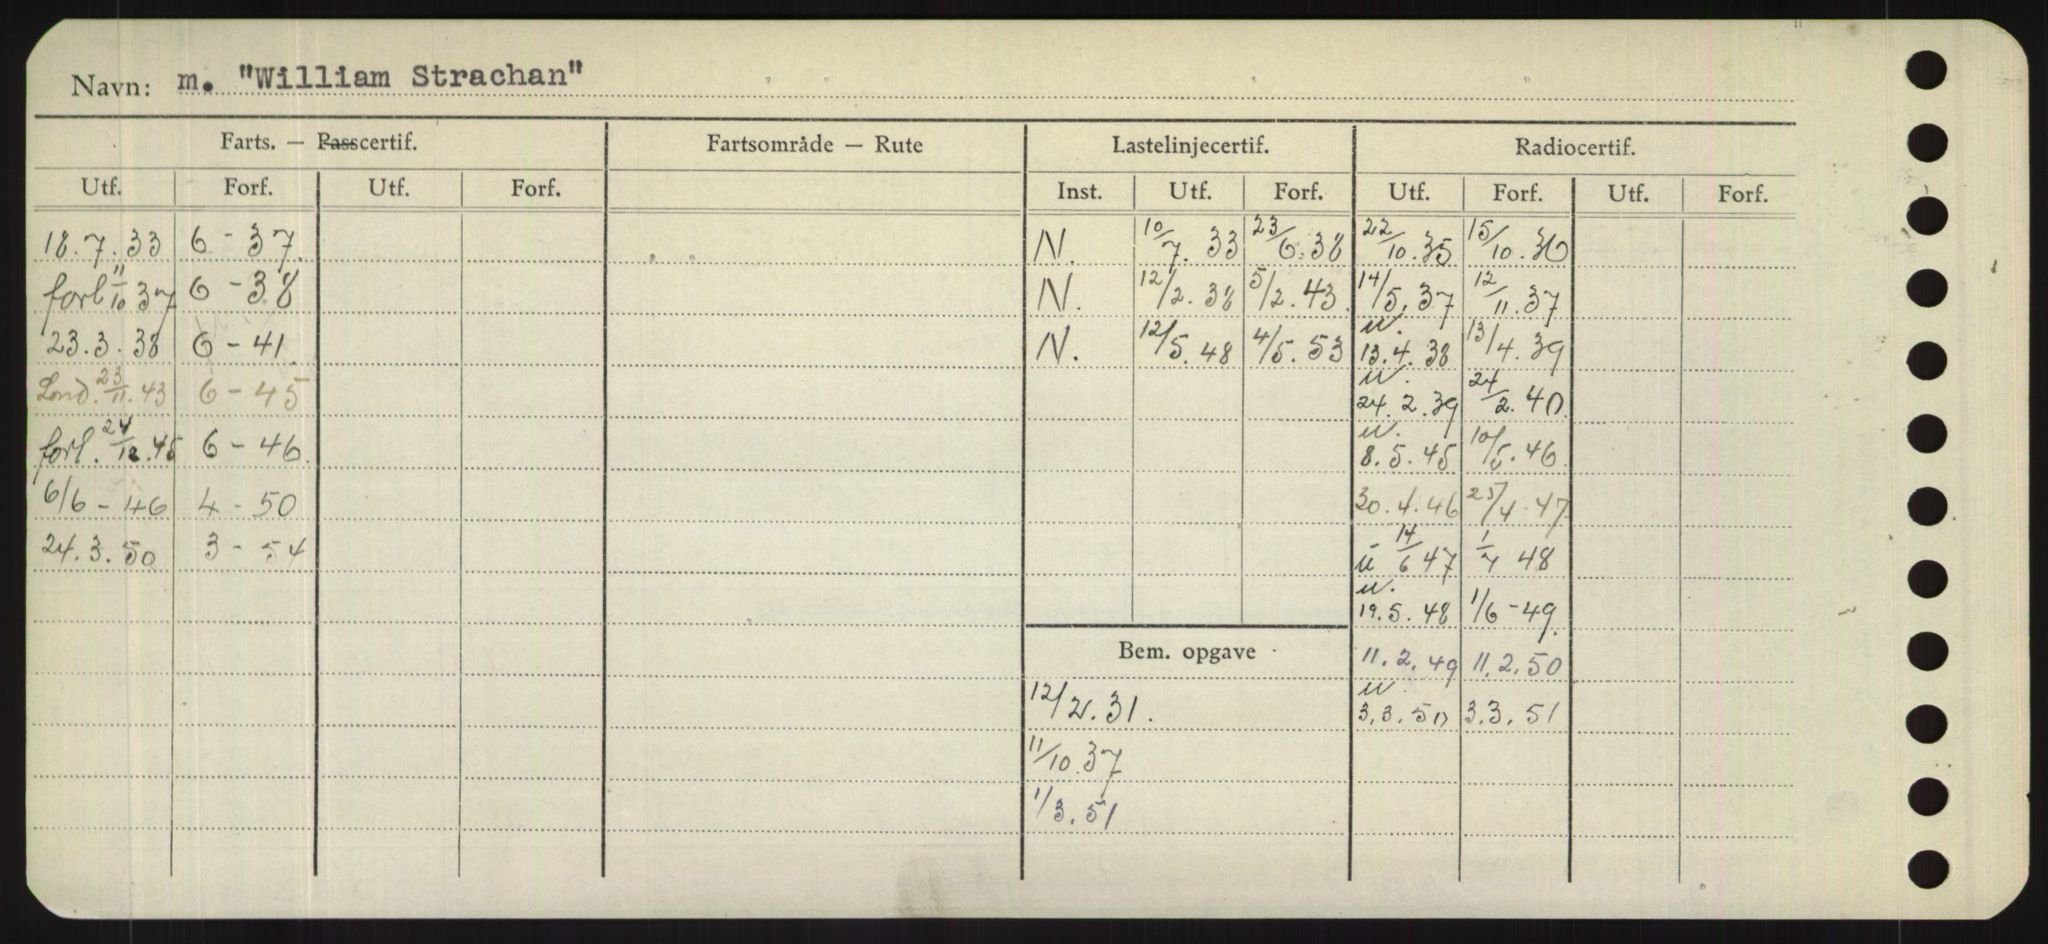 Navn: m. "William Strachan"
Farts. — Passcertif. Fartsområde — Rute Lastelinjecertif. Radiocertif.
Utf. Forf. Utf. Forf. Inst. Utf. Forf. Utf. Forf. Utf. Forf.
18.7.33 6 - 37. N. 10/7. 33 23/6.38 22/10.35 15/10.36
forl 11/10 37 6 - 38 N. 12/2. 38 5/2. 43. 14/5.37 12/11.37
23.3.38 6 - 41. N. 12/5. 48 4/5. 53 u. 13.4.38 13/4.39
Lond. 23/11. 43 6 - 45 u. 24.2.39 24/2.40.
forl. 24/12.45 6 - 46. u. 8.5.45 10/5.46
6/6 - 46 4 - 50 30.4.46 25/4.47
24.3.50 3 - 54 u 14/6 47 1/7 48
u. 19.5.48 1/6 - 49.
Bem. opgave 11.2.49 11.2.50
12/2.31. u. 3.3.50 3.3.51
11/10.37
1/3.51